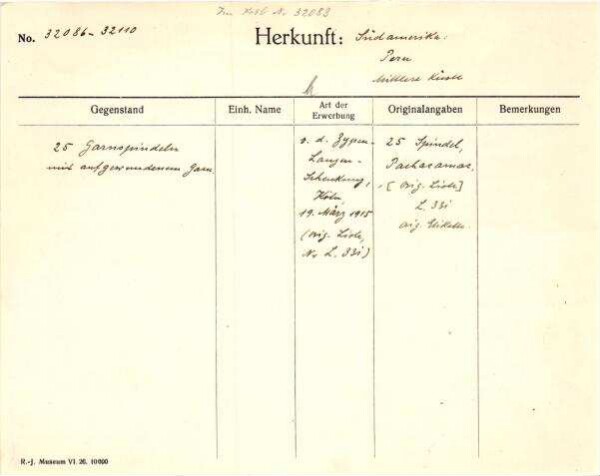 Im Korb No. 32083
No. 32086-32110
Herkunft: Südamerika.
Peru
Mittlere Küste
Gegenstand
Einh. Name
Art der Erwerbung
Originalangaben
Bemerkungen
25 Garnspindeln
mit aufgewundenem Garn.
v. d. Zypen-
Langen-
Schenkung,
Köln,
19. März 1915
(orig. Liste,
No L. 33i)
25 Spindel,
Pachacamac,
[orig. Liste]
L 33i
orig. Etikette.
R.-J. Museum VI. 26. 10000